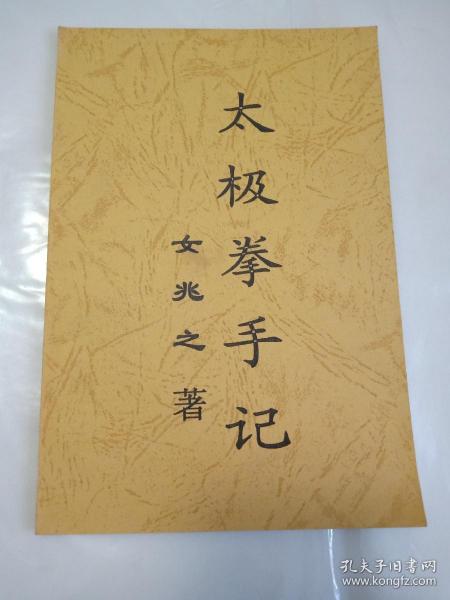 太极拳手记
女兆之著
孔夫子旧书网
www.kongfz.com